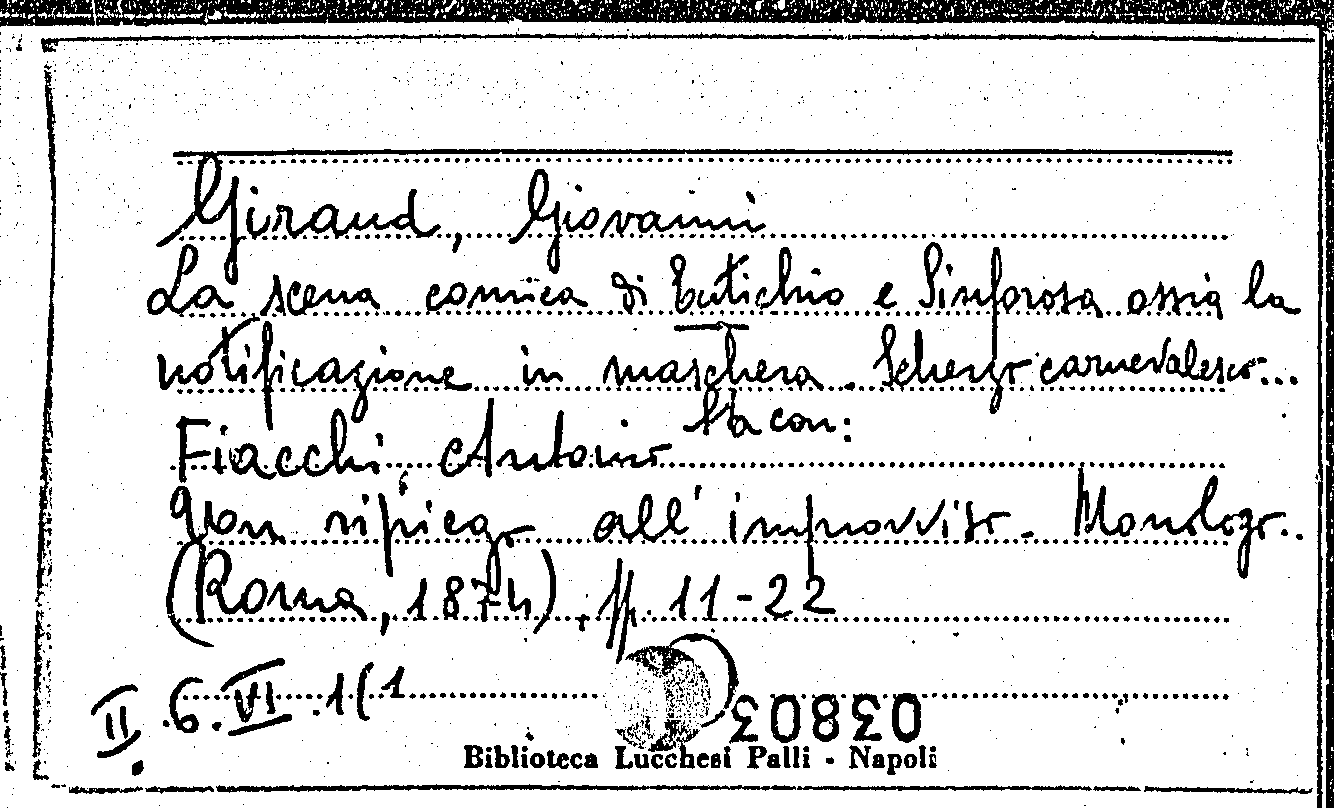 Giraud, Giovanni
La scena comica di Eutichio e Sinforosa ossia la
notificazione in maschera. Scherzo carnevalesco...
Sta con:
Fiacchi, Antonio
ripiego all'improvviso. Monologo..
(Roma, 1874), pp. 11-22
II. 6. VI. 1(1
03803
Biblioteca Lucchesi Palli - Napoli